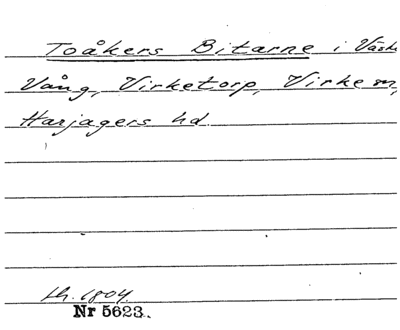 Toåkers Bitarne i
Vång, Virketorp, Virke m,
Harjagers hd
Nr 5623.